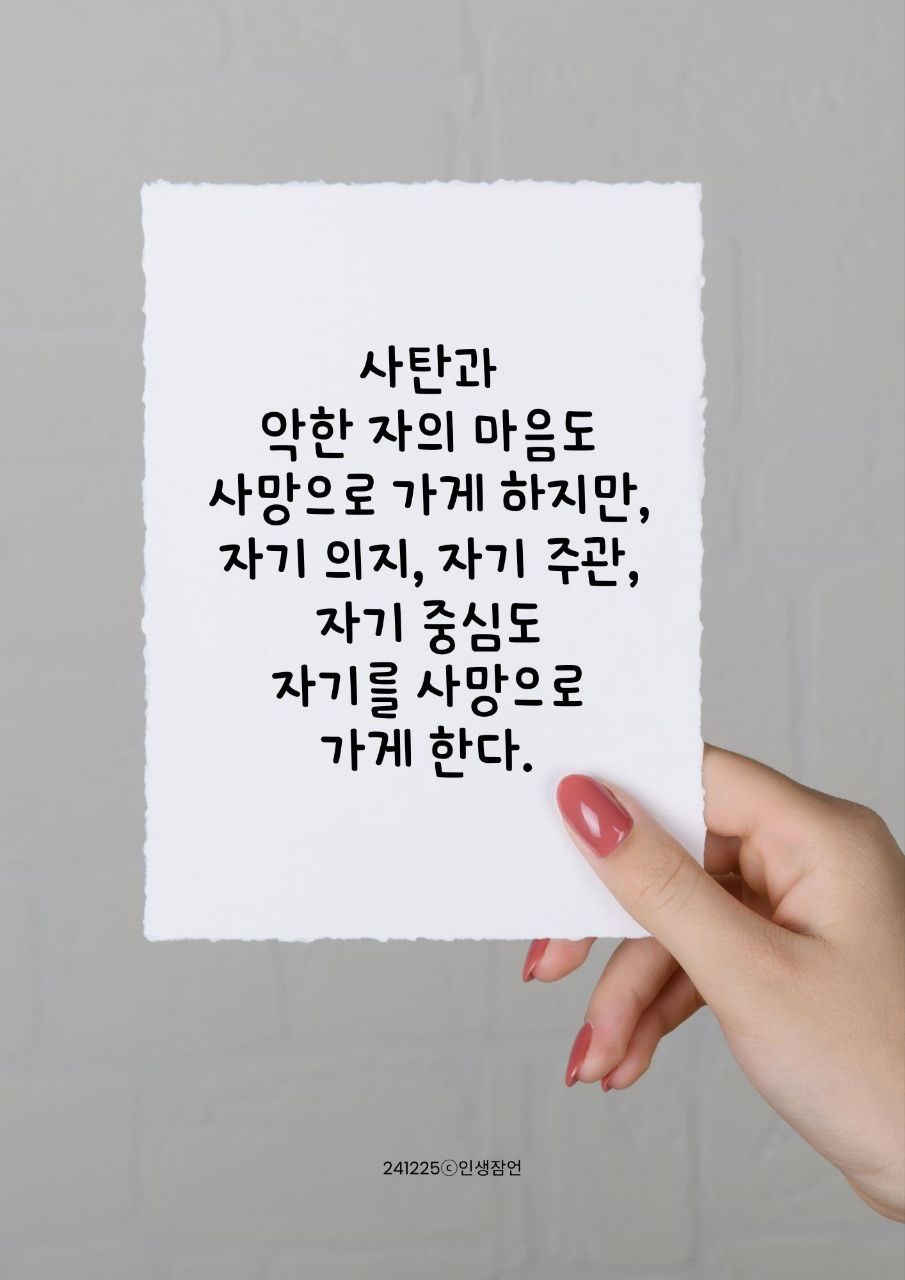 사탄과
악한 자의 마음도
사망으로 가게 하지만,
자기 의지, 자기 주관,
자기 중심도
자기를 사망으로
가게 한다.
241225ⓒ인생잠언